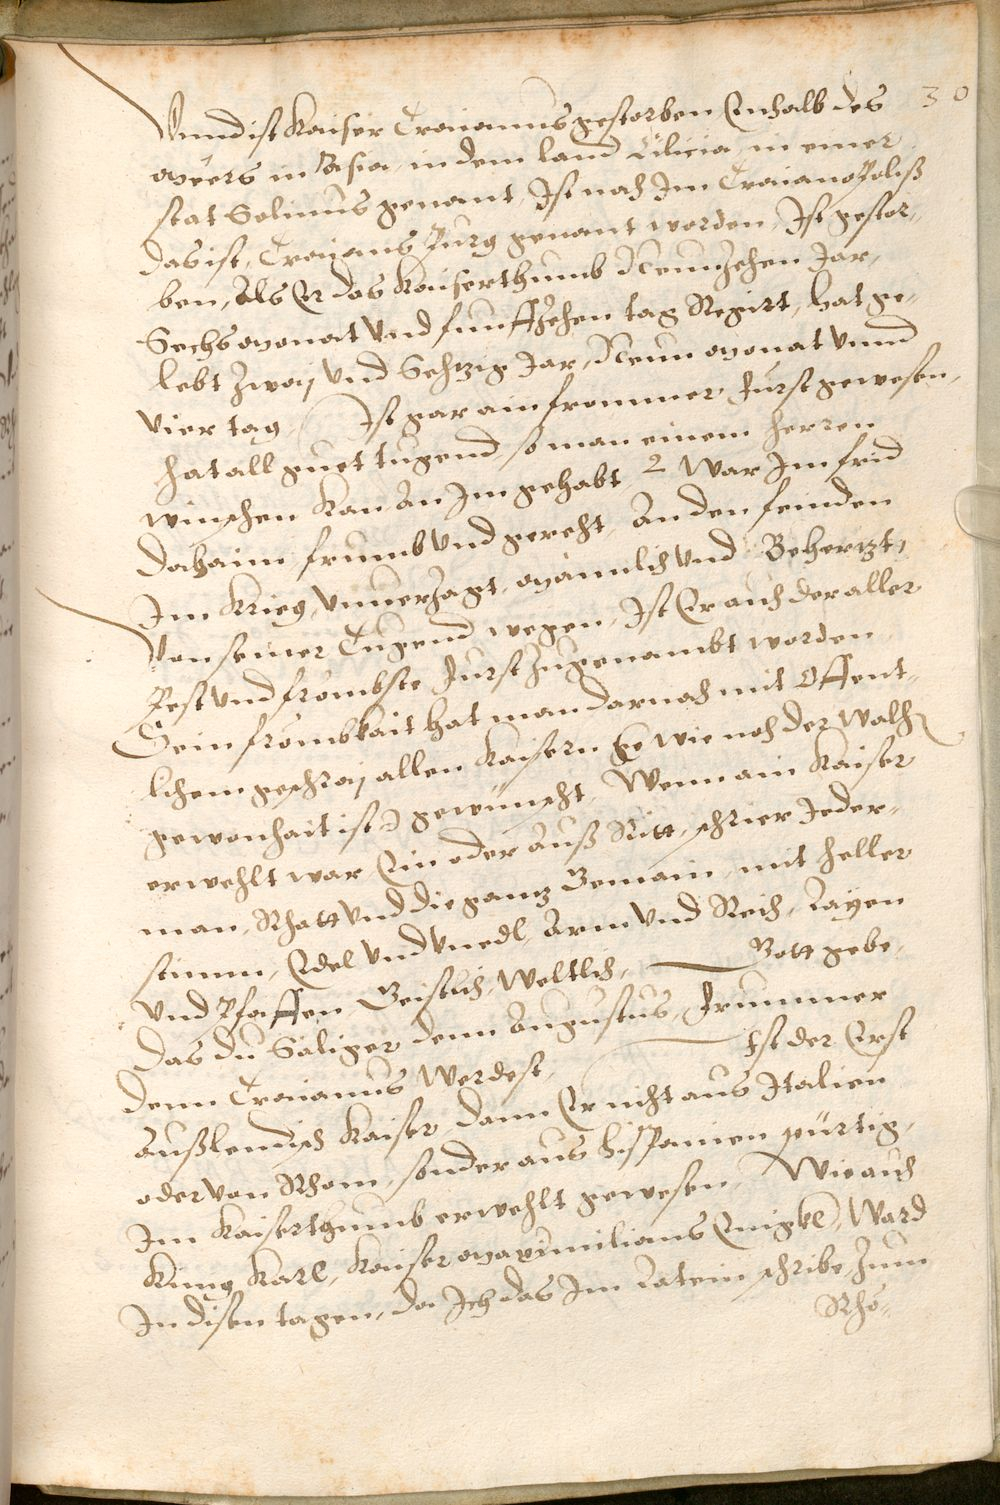 30
Vnnd ist Kaiser Traianus gestorben Enhalb des
Meers in Asia, in dem land Cilicia, in einer
stat Selinus genant, Ist nach Im Traianopolis
das ist, Traians Purg genant worden, Ist gestor-
ben, Als Er das Kaiserthumb Neunzehen Jar,
Sechs Monat vnd funffzehen tag Regirt, hat ge-
lebt zway vnd Sehtzig Jar, Neun Monat vnnd
vier tag, Ist gar ain frommer Furst gewesen,
hat all guet tugend, so man einem herren
winschen kan An Im gehabt, 2 War Im frid
dahaim frumb vnd gereht, An den feinden
Im Krieg, vnuerzagt, Mänlich vnd Behertzt,
Von seiner Tugend wegen, Ist Er auch der aller
Pest vnd frombste Furst zugenambt worden
Sein frombkait hat man darnach mit Offent-
lichem geschray allen Kaisern (: wie noch der Walh
gewonhait ist :) gewünscht, Wenn ain Kaiser
erwehlt war Ein oder Auß Ritt, schrier Jeder-
man, Rhatt vnd die gantz Gemain, mit heller
stimm, Edel vnd vnedl, Arm vnd Reich, Layen
vnd Pfaffen, Geistlich, Weltlich, Gott gebe,
das du Säliger denn Augustus, Frummer
denn Traianus Werdest, Ist der Erst
außlendisch Kaiser, dann Er nicht aus Italien
oder von Rhom, sonder aus hispanien pürtig,
Im Kaiserthumb erwehlt gewesen, Wie auch
Kung Karl, Kaiser Maximilians Enigkl, Ward
In disen tagen, da Ich das Im Latein schribe, zum
Rhö-